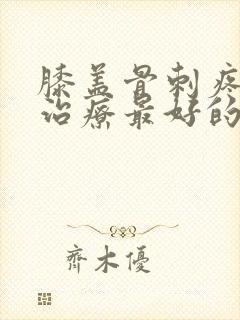 膝盖骨刺疼
治療最好的
齊木優